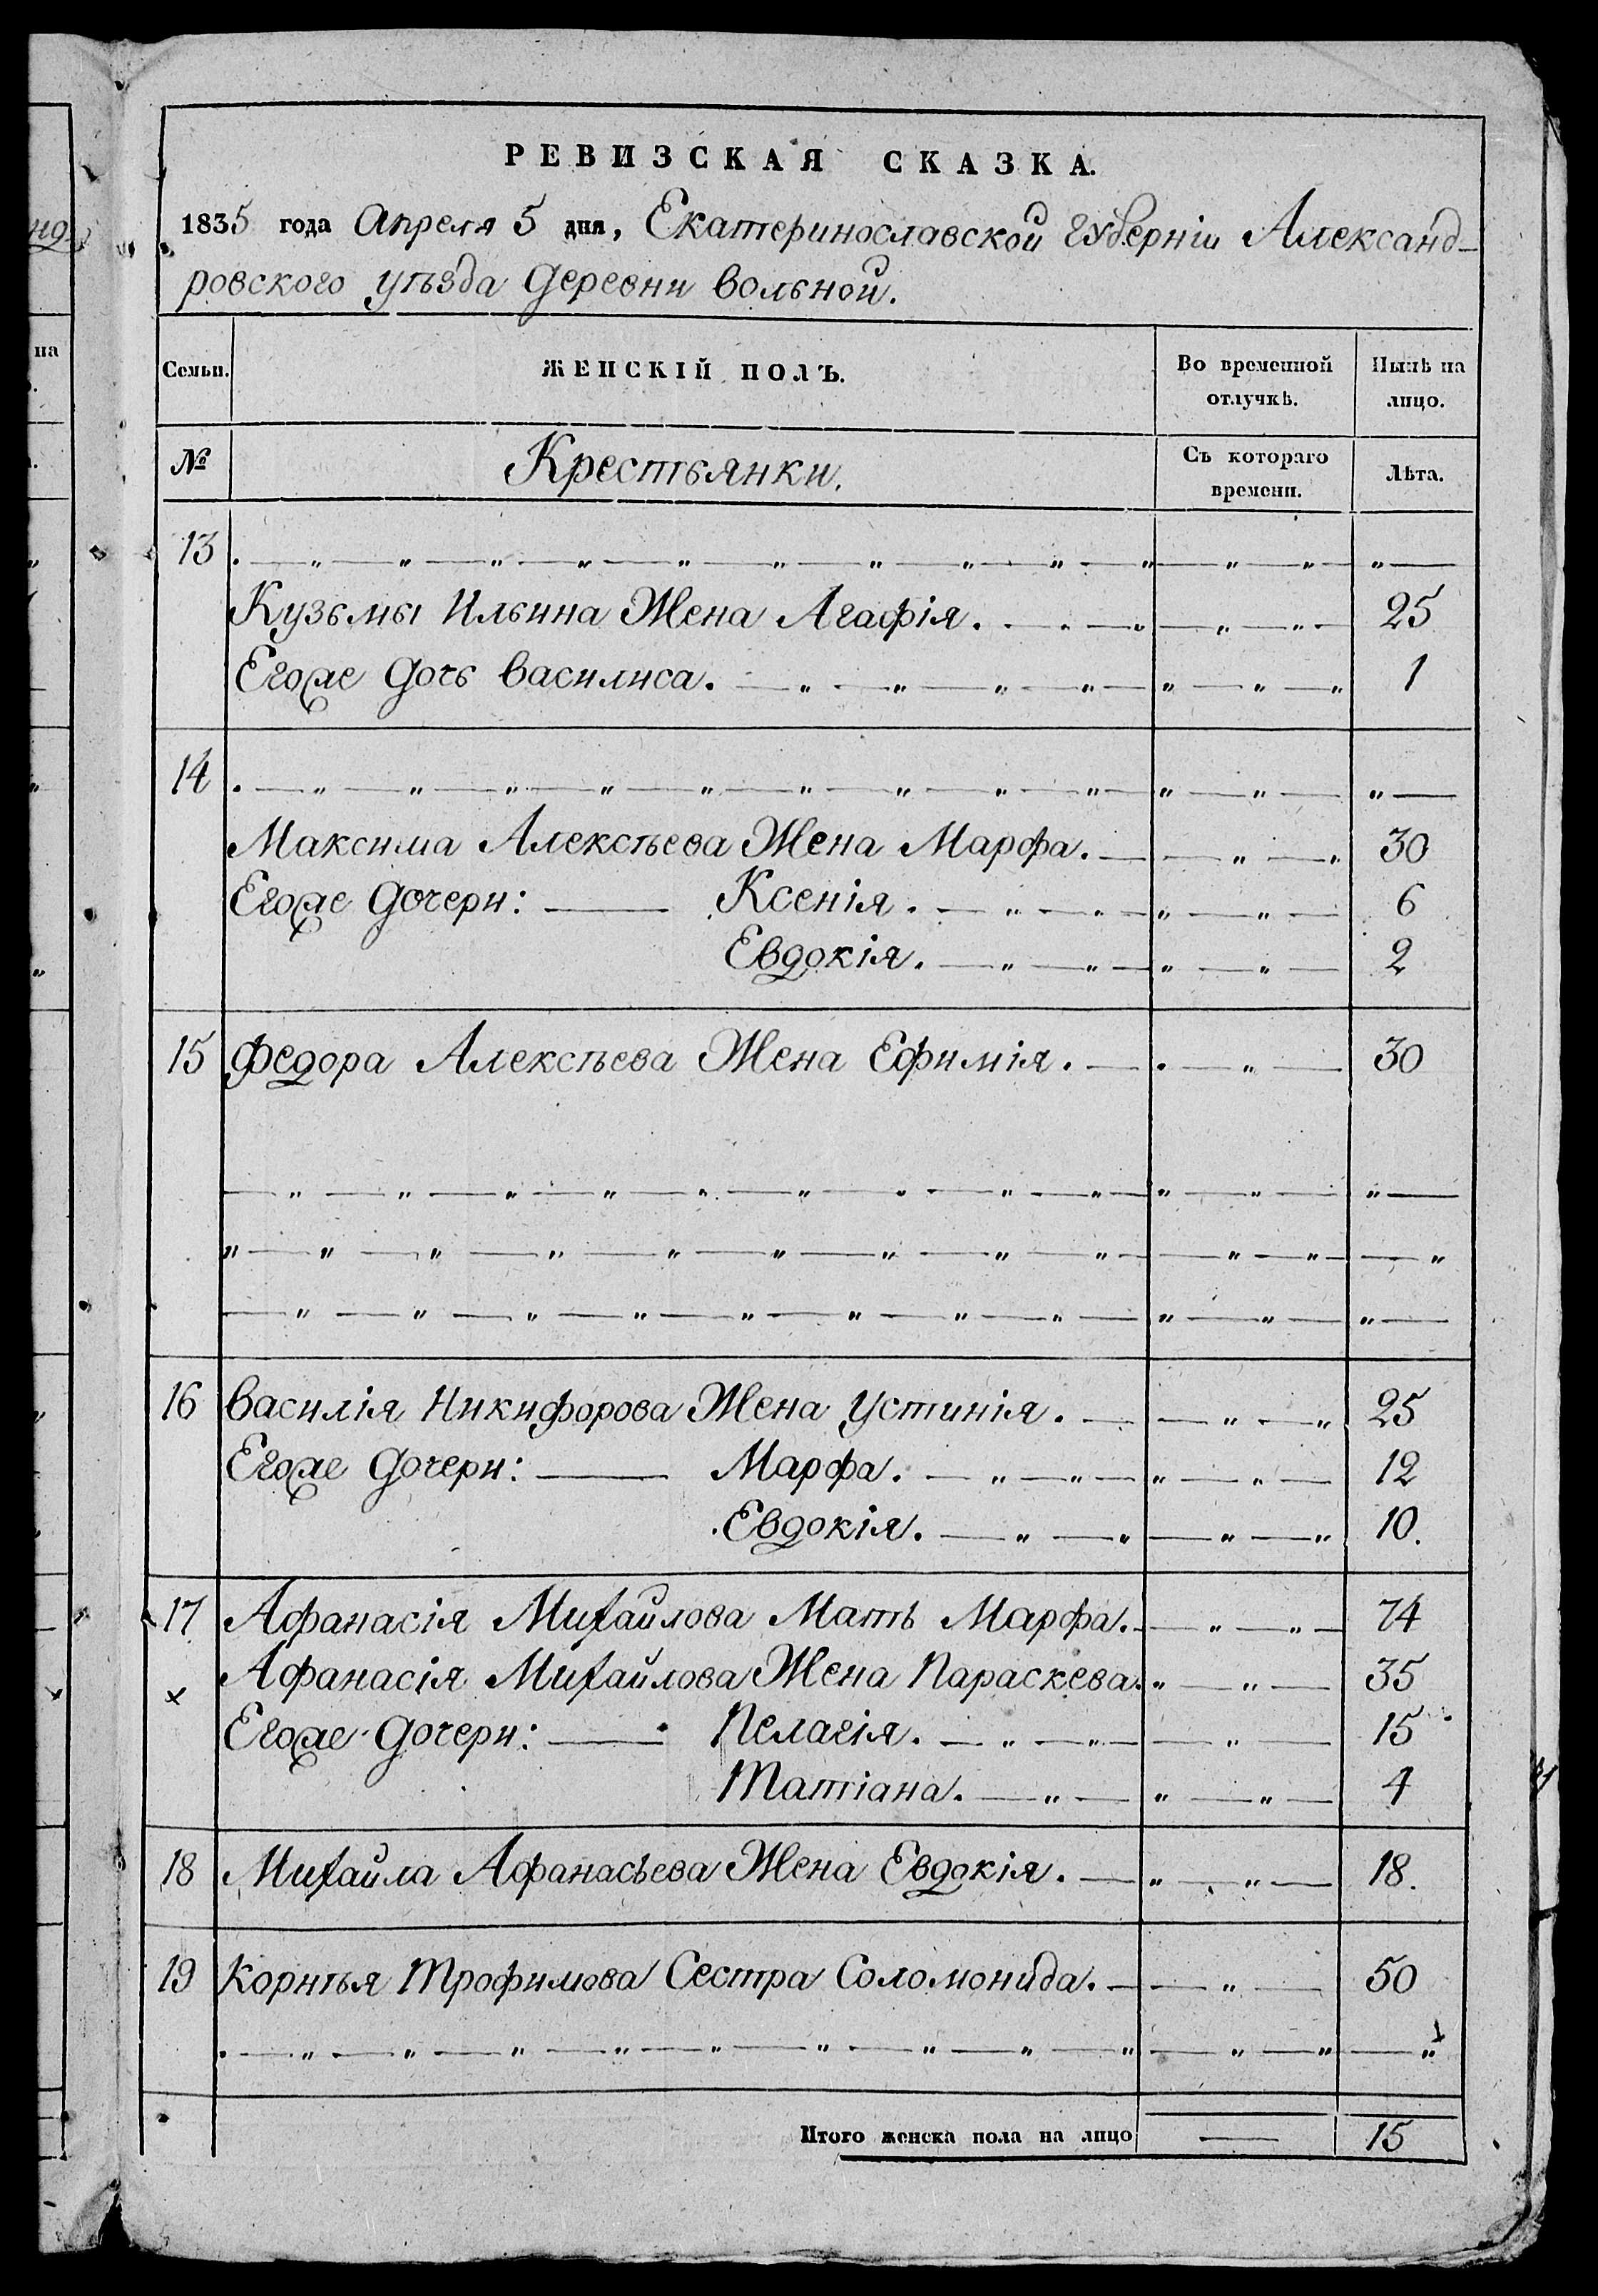 РЕВИЗСКАЯ СКАЗКА.
1835 года Апреля 5 дня, Екатеринославской Губерніи Александ-
ровского уѣзда Деревни Вольной.
Семьи. ЖЕНСКІЙ ПОЛЪ. Во временной отлучкѣ. Нынѣ на лицо.
№ Крестьянки. Съ котораго времени. Лѣта.
13
Кузьмы Ильина Жена Агафія. 25
Егоже Дочь Василиса. 1
14
Максима Алексѣева Жена Марфа. 30
Егоже Дочери: Ксенія. 6
Евдокія. 2
15 Федора Алексѣева Жена Ефимія. 30
16 Василія Никифорова Жена Устинія. 25
Егоже Дочери: Марфа. 12
Евдокія. 10.
17 Афанасія Михайлова Мать Марфа. 74
х Афанасія Михайлова Жена Параскева. 35
Егоже Дочери: Пелагія. 15
Татіана. 4
18 Михайла Афанасьева Жена Евдокія. 18.
19 Корнѣя Трофимова Сестра Соломонида. 50
Итого женска пола на лицо 15